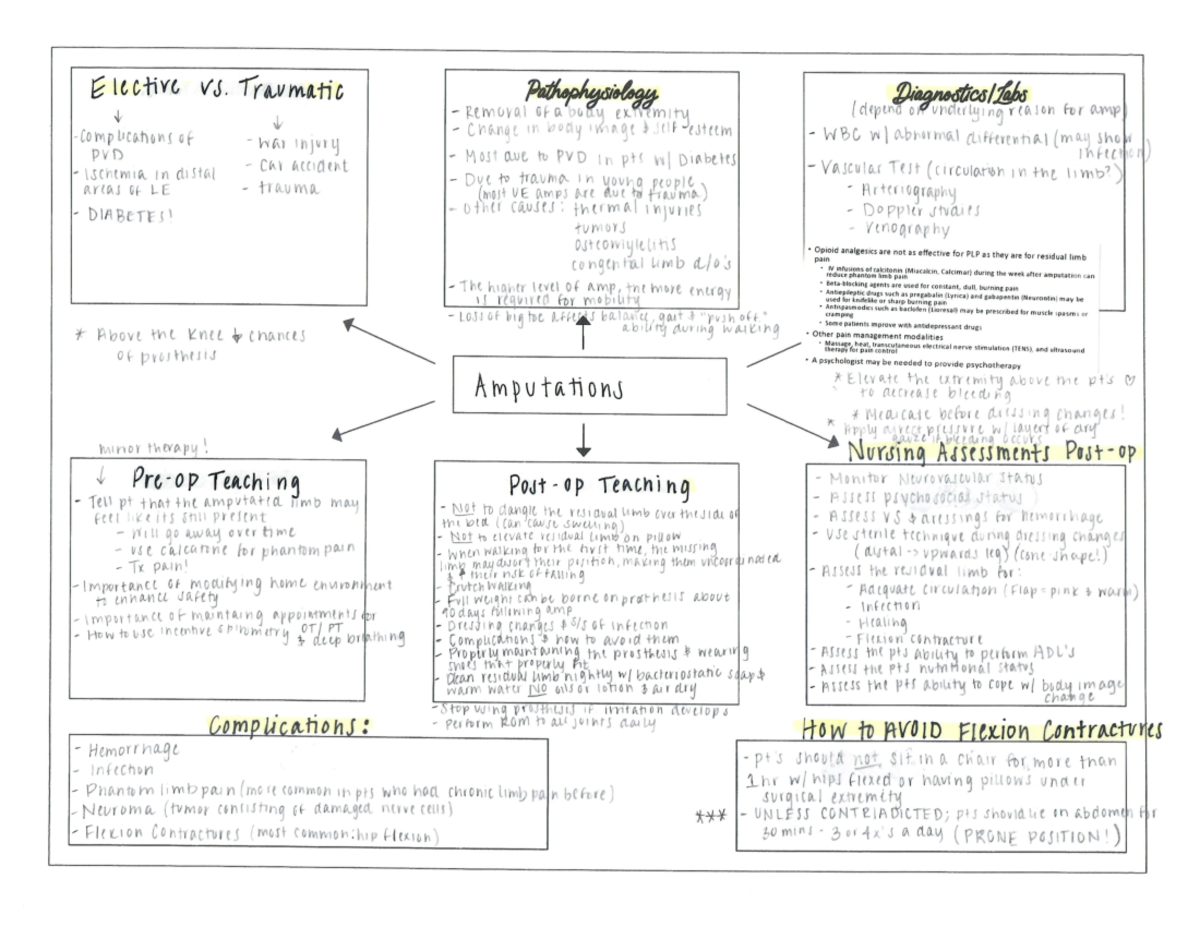 Elective vs. Traumatic
-Complications of
PVD
- Ischemia in distal
areas of LE
- DIABETES!
- War injury
- Car accident
- trauma
* Above the Knee ↓ chances
of prosthesis
Pathophysiology
- Removal of a body extremity
- Change in body image & self-esteem
- Most due to PVD in pts w/ Diabetes
- Due to trauma in young people
(most UE amps are due to trauma)
- Other causes: thermal injuries
tumors
osteomyleitis
congental limb d/o's
- The higher level of amp, the more energy
is required for mobility
- Loss of big toe affects balance, gait & "push off"
ability during walking
Diagnostics/Labs
(depend on underlying reason for amp)
- WBC w/ abnormal differential (may show
infection)
- Vascular Test (circulation in the limb?)
- Arteriography
- Doppler studies
- Venography
• Opioid analgesics are not as effective for PLP as they are for residual limb
pain
• IV infusions of calcitonin (Miacalcin, Calcimar) during the week after amputation can
reduce phantom limb pain
• Beta-blocking agents are used for constant, dull, burning pain
• Antiepileptic drugs such as pregabalin (Lyrica) and gabapentin (Neurontin) may be
used for knifelike or sharp burning pain
• Antispasmodics such as baclofen (Lioresal) may be prescribed for muscle spasms or
cramping
• Some patients improve with antidepressant drugs
• Other pain management modalities
• Massage, heat, transcutaneous electrical nerve stimulation (TENS), and ultrasound
therapy for pain control
• A psychologist may be needed to provide psychotherapy
* Elevate the extremity above the pt's ♡
to decrease bleeding
* Medicate before dressing changes!
* Apply direct pressure w/ layers of dry
gauze if bleeding occurs
Amputations
mirror therapy!
Pre-op Teaching
- Tell pt that the amputated limb may
feel like its still present
- Will go away over time
- use calcatone for phantom pain
- Tx pain!
-Importance of modifying home environment
to enhance safety
- Importance of maintaing appointments for
OT/PT
- How to use incentive spirometry & deep breathing
Post-op Teaching
- Not to dangle the residual limb over the side of
the bed (can cause swelling)
- Not to elevate residual limb on pillow
- When walking for the first time, the missing
limb may distort their position, making them uncoordinated
& ↑ their risk of falling
- Crutch walking
- Full weight can be borne on prosthesis about
90 days following amp
- Dressing changes & s/s of infection
- Complications & how to avoid them
- Properly maintaining the prosthesis & wearing
shoes that properly fit
- Clean residual limb nightly w/ bacteriostatic soap &
warm water NO oils or lotion & air dry
- Stop using prosthesis if irritation develops
- Perform ROM to all joints daily
Nursing Assessments Post-op
- Monitor Neurovascular status
- Assess psychosocial status
- Assess VS & dressings for hemorrhage
- Use sterile technique during dressing changes
(distal -> upwards leg) (cone shape!)
- Assess the residual limb for:
- Adequate circulation (Flap = pink & warm)
- Infection
- Healing
- Flexion contracture
- Assess the pts ability to perform ADL's
- Assess the pts nutritional status
- Assess the pts ability to cope w/ body image
change
Complications:
- Hemorrhage
- Infection
- Phantom limb pain (more common in pts who had chronic limb pain before)
- Neuroma (tumor consisting of damaged nerve cells)
- Flexion Contractures (most common: hip flexion)
How to AVOID Flexion Contractures
- pt's should not sit in a chair for more than
1 hr w/ hips flexed or having pillows under
surgical extremity
*** - UNLESS CONTRIADICTED; pts should lie on abdomen for
30 mins - 3 or 4x's a day (PRONE POSITION!)